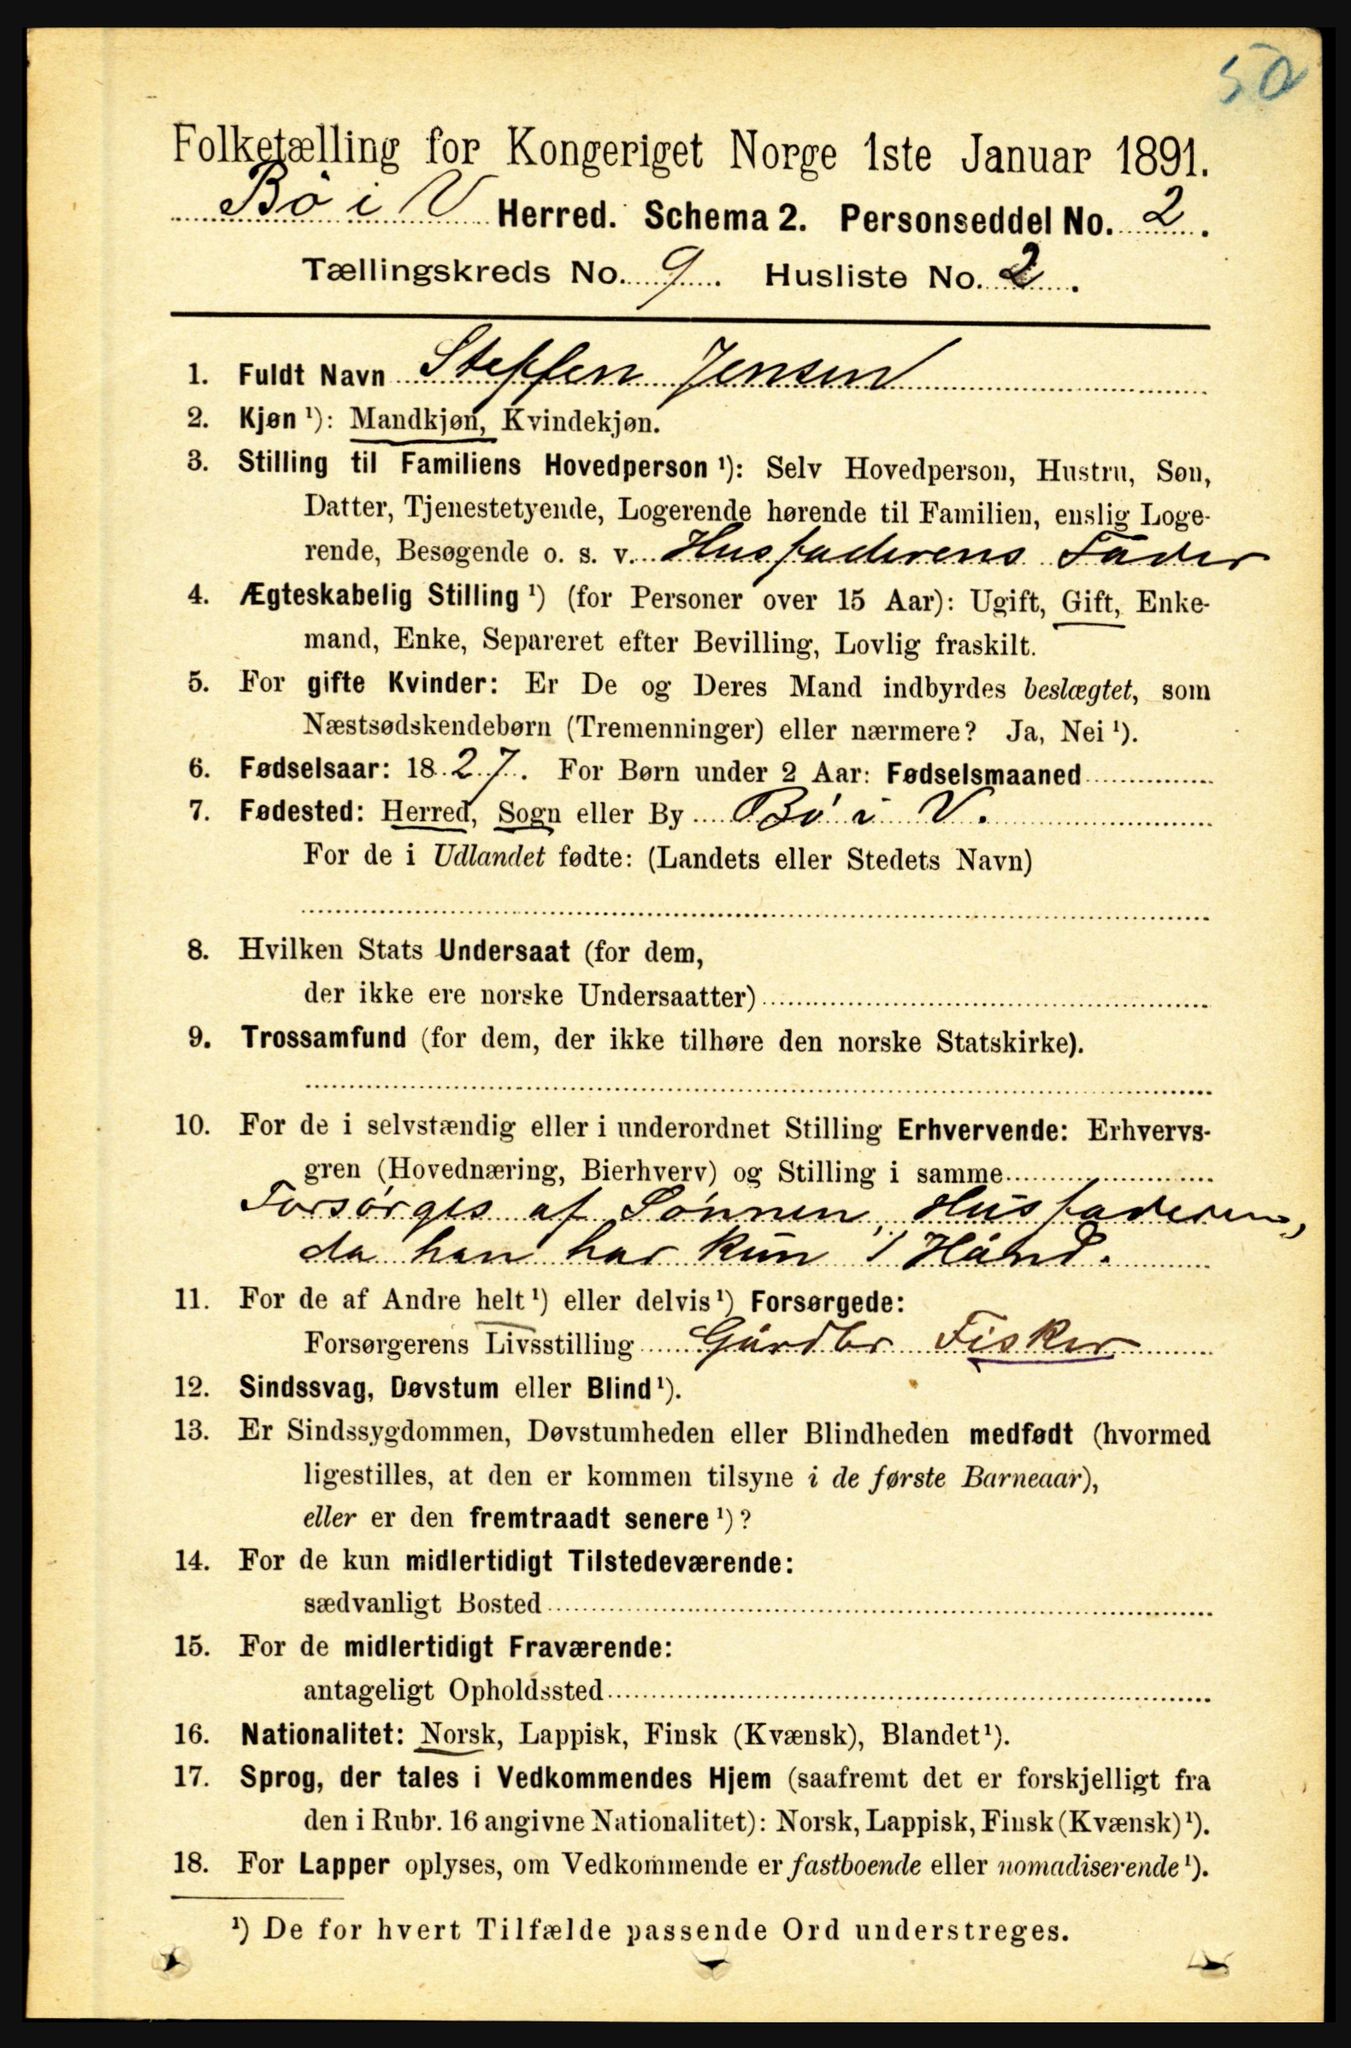 50
Folketælling for Kongeriget Norge 1ste Januar 1891.
Bø i V Herred. Schema 2. Personseddel No. 2.
Tællingskreds No. 9. Husliste No. 2.
1. Fuldt Navn Steffen Jensen
2. Kjøn ¹): Mandkjøn, Kvindekjøn.
3. Stilling til Familiens Hovedperson ¹): Selv Hovedperson, Hustru, Søn,
Datter, Tjenestetyende, Logerende hørende til Familien, enslig Loge-
rende, Besøgende o. s. v. Husfaderens Fader
4. Ægteskabelig Stilling ¹) (for Personer over 15 Aar): Ugift, Gift, Enke-
mand, Enke, Separeret efter Bevilling, Lovlig fraskilt.
5. For gifte Kvinder: Er De og Deres Mand indbyrdes beslægtet, som
Næstsødskendebørn (Tremenninger) eller nærmere? Ja, Nei ¹).
6. Fødselsaar: 1827. For Børn under 2 Aar: Fødselsmaaned
7. Fødested: Herred, Sogn eller By Bø i V.
For de i Udlandet fødte: (Landets eller Stedets Navn)
8. Hvilken Stats Undersaat (for dem,
der ikke ere norske Undersaatter)
9. Trossamfund (for dem, der ikke tilhøre den norske Statskirke).
10. For de i selvstændig eller i underordnet Stilling Erhvervende: Erhvervs-
gren (Hovednæring, Bierhverv) og Stilling i samme
Forsørges af Sønnen, Husfaderen,
da han har kun 1 Hånd.
11. For de af Andre helt ¹) eller delvis ¹) Forsørgede:
Forsørgerens Livsstilling Gårdbr Fisker
12. Sindssvag, Døvstum eller Blind ¹).
13. Er Sindssygdommen, Døvstumheden eller Blindheden medfødt (hvormed
ligestilles, at den er kommen tilsyne i de første Barneaar),
eller er den fremtraadt senere ¹)?
14. For de kun midlertidigt Tilstedeværende:
sædvanligt Bosted
15. For de midlertidigt Fraværende:
antageligt Opholdssted
16. Nationalitet: Norsk, Lappisk, Finsk (Kvænsk), Blandet ¹).
17. Sprog, der tales i Vedkommendes Hjem (saafremt det er forskjelligt fra
den i Rubr. 16 angivne Nationalitet): Norsk, Lappisk, Finsk (Kvænsk) ¹).
18. For Lapper oplyses, om Vedkommende er fastboende eller nomadiserende ¹).
¹) De for hvert Tilfælde passende Ord understreges.